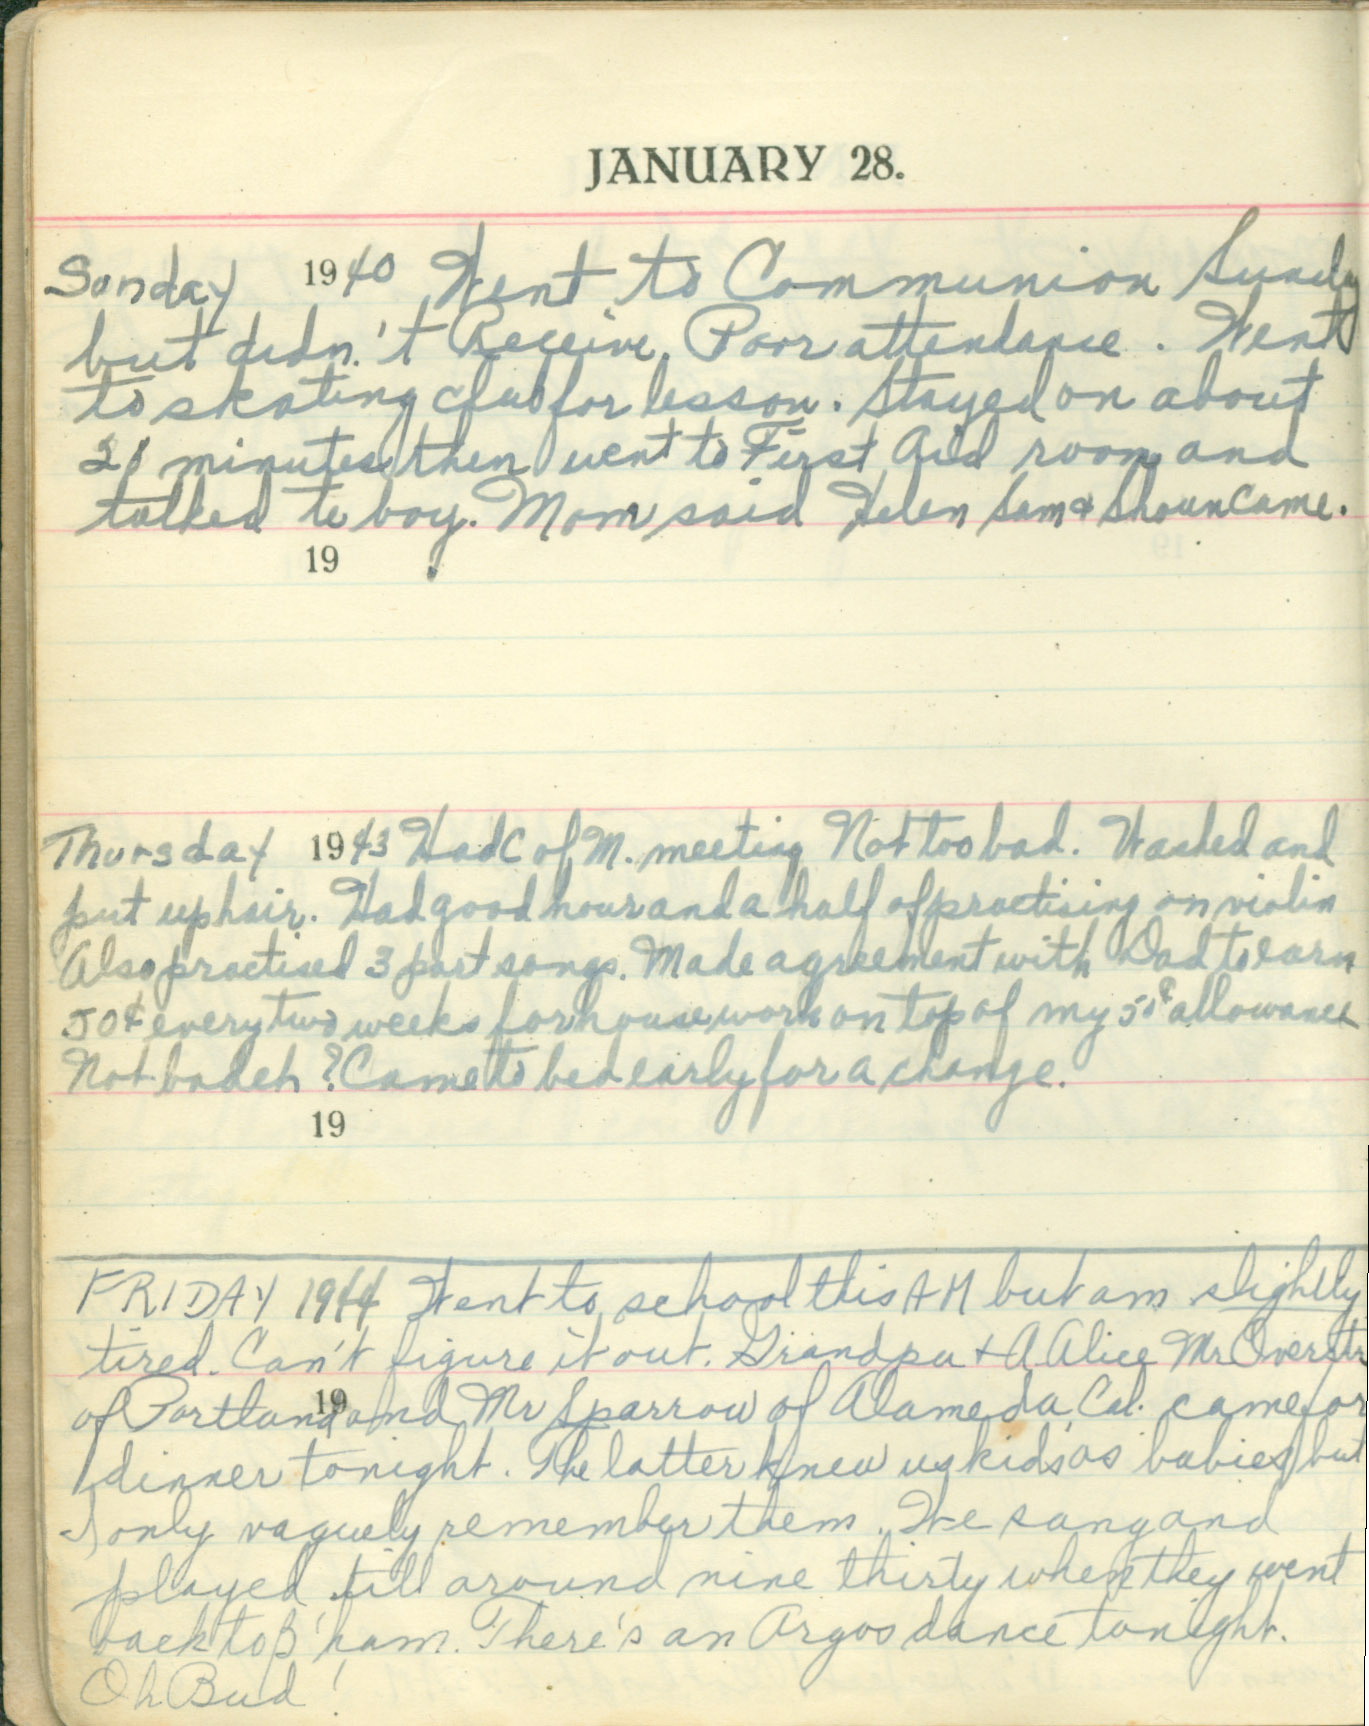 JANUARY 28.
Sunday 1940 Went to Communion Sunday
but didn't Receive. Poor attendance. Went
to skating club for lesson. Stayed on about
21 minutes then went to First Aid room and
talked to boy. Mom said Helen Sam & Shaun came.
19
Thursday 1943 Had C of M. meeting Not too bad. Washed and
put up hair. Had good hour and a half of practising on violin
Also practised 3 part songs. Made agreement with Dad to earn
50¢ every two weeks for housework on top of my 50¢ allowance
Not bad eh? Came to bed early for a change.
19
FRIDAY 1944 Went to school this AM but am slightly
tired. Can't figure it out. Grandpa + A. Alice Mr
19
of Portland and Mr Sparrow of Alameda, Cal. came for
dinner tonight. The latter knew us kids as babies but
I only vaguely remember them. We sang and
played till around nine thirty when they went
back to B'ham. There's an Argos dance tonight.
Oh Bud!